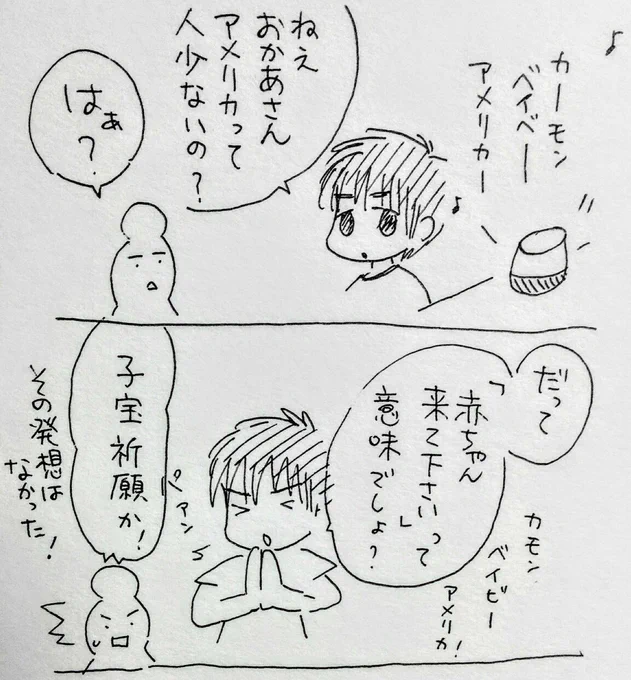 ♪
カーモン
ベイベー
アメリカー
♪
ねえ
おかあさん
アメリカって
人少ないの？
はぁ？
だって
「赤ちゃん
来て下さいって」
意味でしょ？
カモン
ベイビー
アメリカ！
パアン
子宝祈願か！
その発想は
なかった！